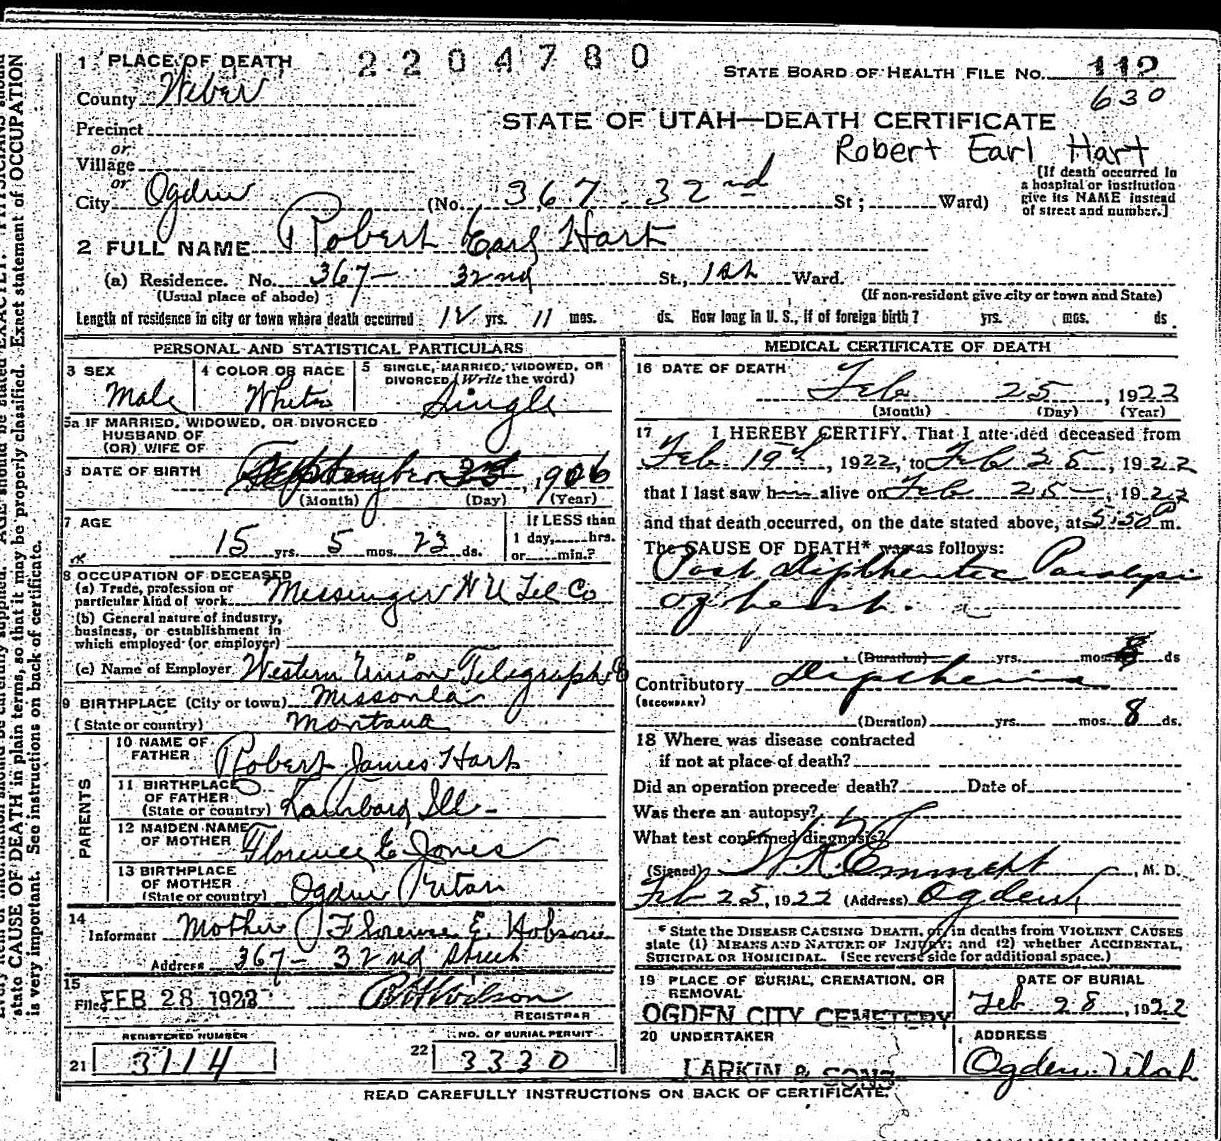 2204780
1 PLACE OF DEATH
STATE BOARD OF HEALTH FILE No. 112
County Weber
630
STATE OF UTAH—DEATH CERTIFICATE
Precinct
or
Village
Robert Earl Hart
or
City Ogden (No. 367 - 32nd St; Ward)
[If death occurred in
a hospital or institution
give its NAME instead
of street and number.]
2 FULL NAME Robert Earl Hart
(a) Residence. No. 367 - 32nd St., 1st Ward.
(Usual place of abode) (If non-resident give city or town and State)
Length of residence in city or town where death occurred 12 yrs. 11 mos. ds. How long in U. S., if of foreign birth? yrs. mos. ds
PERSONAL AND STATISTICAL PARTICULARS
3 SEX Male
4 COLOR OR RACE White
5 SINGLE, MARRIED, WIDOWED, OR
DIVORCED (Write the word)
Single
5a IF MARRIED, WIDOWED, OR DIVORCED
HUSBAND OF
(OR) WIFE OF
6 DATE OF BIRTH September , 1906
(Month) (Day) (Year)
7 AGE
15 yrs. 5 mos. 23 ds.
If LESS than
1 day, hrs.
or min.?
8 OCCUPATION OF DECEASED
(a) Trade, profession or
particular kind of work Messinger W U Tel Co
(b) General nature of industry,
business, or establishment in
which employed (or employer)
(c) Name of Employer Western Union Telegraph Co
9 BIRTHPLACE (City or town) Missoula
(State or country) Montana
PARENTS
10 NAME OF
FATHER Robert James Hart
11 BIRTHPLACE
OF FATHER
(State or country) Ill -
12 MAIDEN NAME
OF MOTHER Florence E Jones
13 BIRTHPLACE
OF MOTHER
(State or country) Ogden Utah
14
Informant Mother Florence E. Hobson
Address 367 - 32nd Street
15
File FEB 28 1922 Wilson
REGISTRAR
REGISTERED NUMBER
21 3114
NO. OF BURIAL PERMIT
22 3330
MEDICAL CERTIFICATE OF DEATH
16 DATE OF DEATH
Feb 25, 1922
(Month) (Day) (Year)
17 I HEREBY CERTIFY, That I attended deceased from
Feb 19th, 1922, to Feb 25, 1922
that I last saw h alive on Feb 25, 1922
and that death occurred, on the date stated above, at 5:50 P m.
The CAUSE OF DEATH* was as follows:
Post Diptheritic Paralysis
of heart.
(Duration) yrs. mos. ds
Contributory Diptheria
(SECONDARY)
(Duration) yrs. mos. 8 ds.
18 Where was disease contracted
if not at place of death?
Did an operation precede death? Date of
Was there an autopsy?
What test confirmed diagnosis?
(Signed) Emmett, M. D.
Feb 25, 1922 (Address) Ogden
* State the DISEASE CAUSING DEATH, or in deaths from VIOLENT CAUSES
state (1) MEANS AND NATURE OF INJURY; and (2) whether ACCIDENTAL,
SUICIDAL OR HOMICIDAL. (See reverse side for additional space.)
19 PLACE OF BURIAL, CREMATION, OR
REMOVAL
OGDEN CITY CEMETERY
DATE OF BURIAL
Feb 28, 1922
20 UNDERTAKER
LARKIN & SONS
ADDRESS
Ogden Utah
READ CAREFULLY INSTRUCTIONS ON BACK OF CERTIFICATE.
state CAUSE OF DEATH in plain terms, so that it may be properly classified. Exact statement of OCCUPATION
is very important. See instructions on back of certificate.